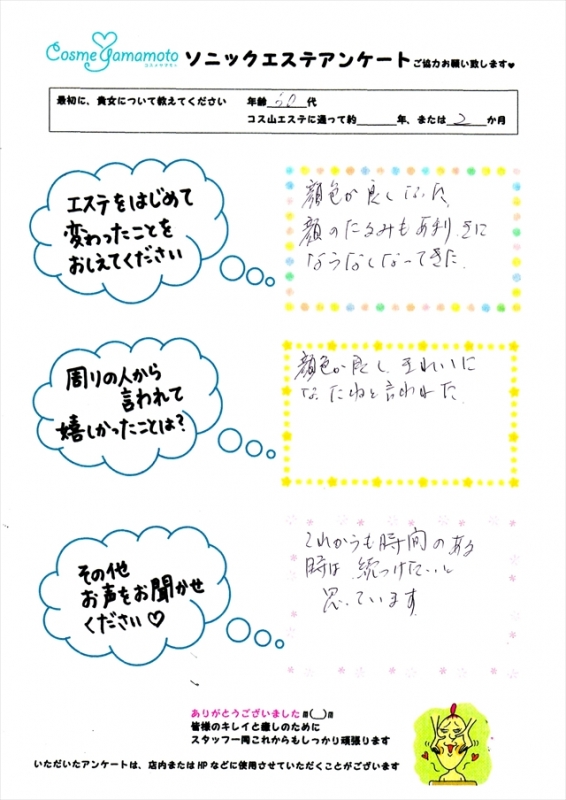 Cosme Yamamoto
コスメヤマモト
ソニックエステアンケートご協力お願い致します♥
最初に、貴女について教えてください
年齢 60 代
コス山エステに通って約 年、または 2 か月
エステをはじめて
変わったことを
おしえてください
顔色が良くなった。
顔のたるみも あまり 気に
ならなくなってきた。
周りの人から
言われて
嬉しかったことは?
顔色が良く、きれいに
なったねと言われた。
その他
お声をお聞かせ
ください♡
これからも時間のある
時は 続つけたいと
思っています
ありがとうございました
皆様のキレイと癒しのために
スタッフ一同これからもしっかり頑張ります
いただいたアンケートは、店内またはHPなどに使用させていただくことがございます